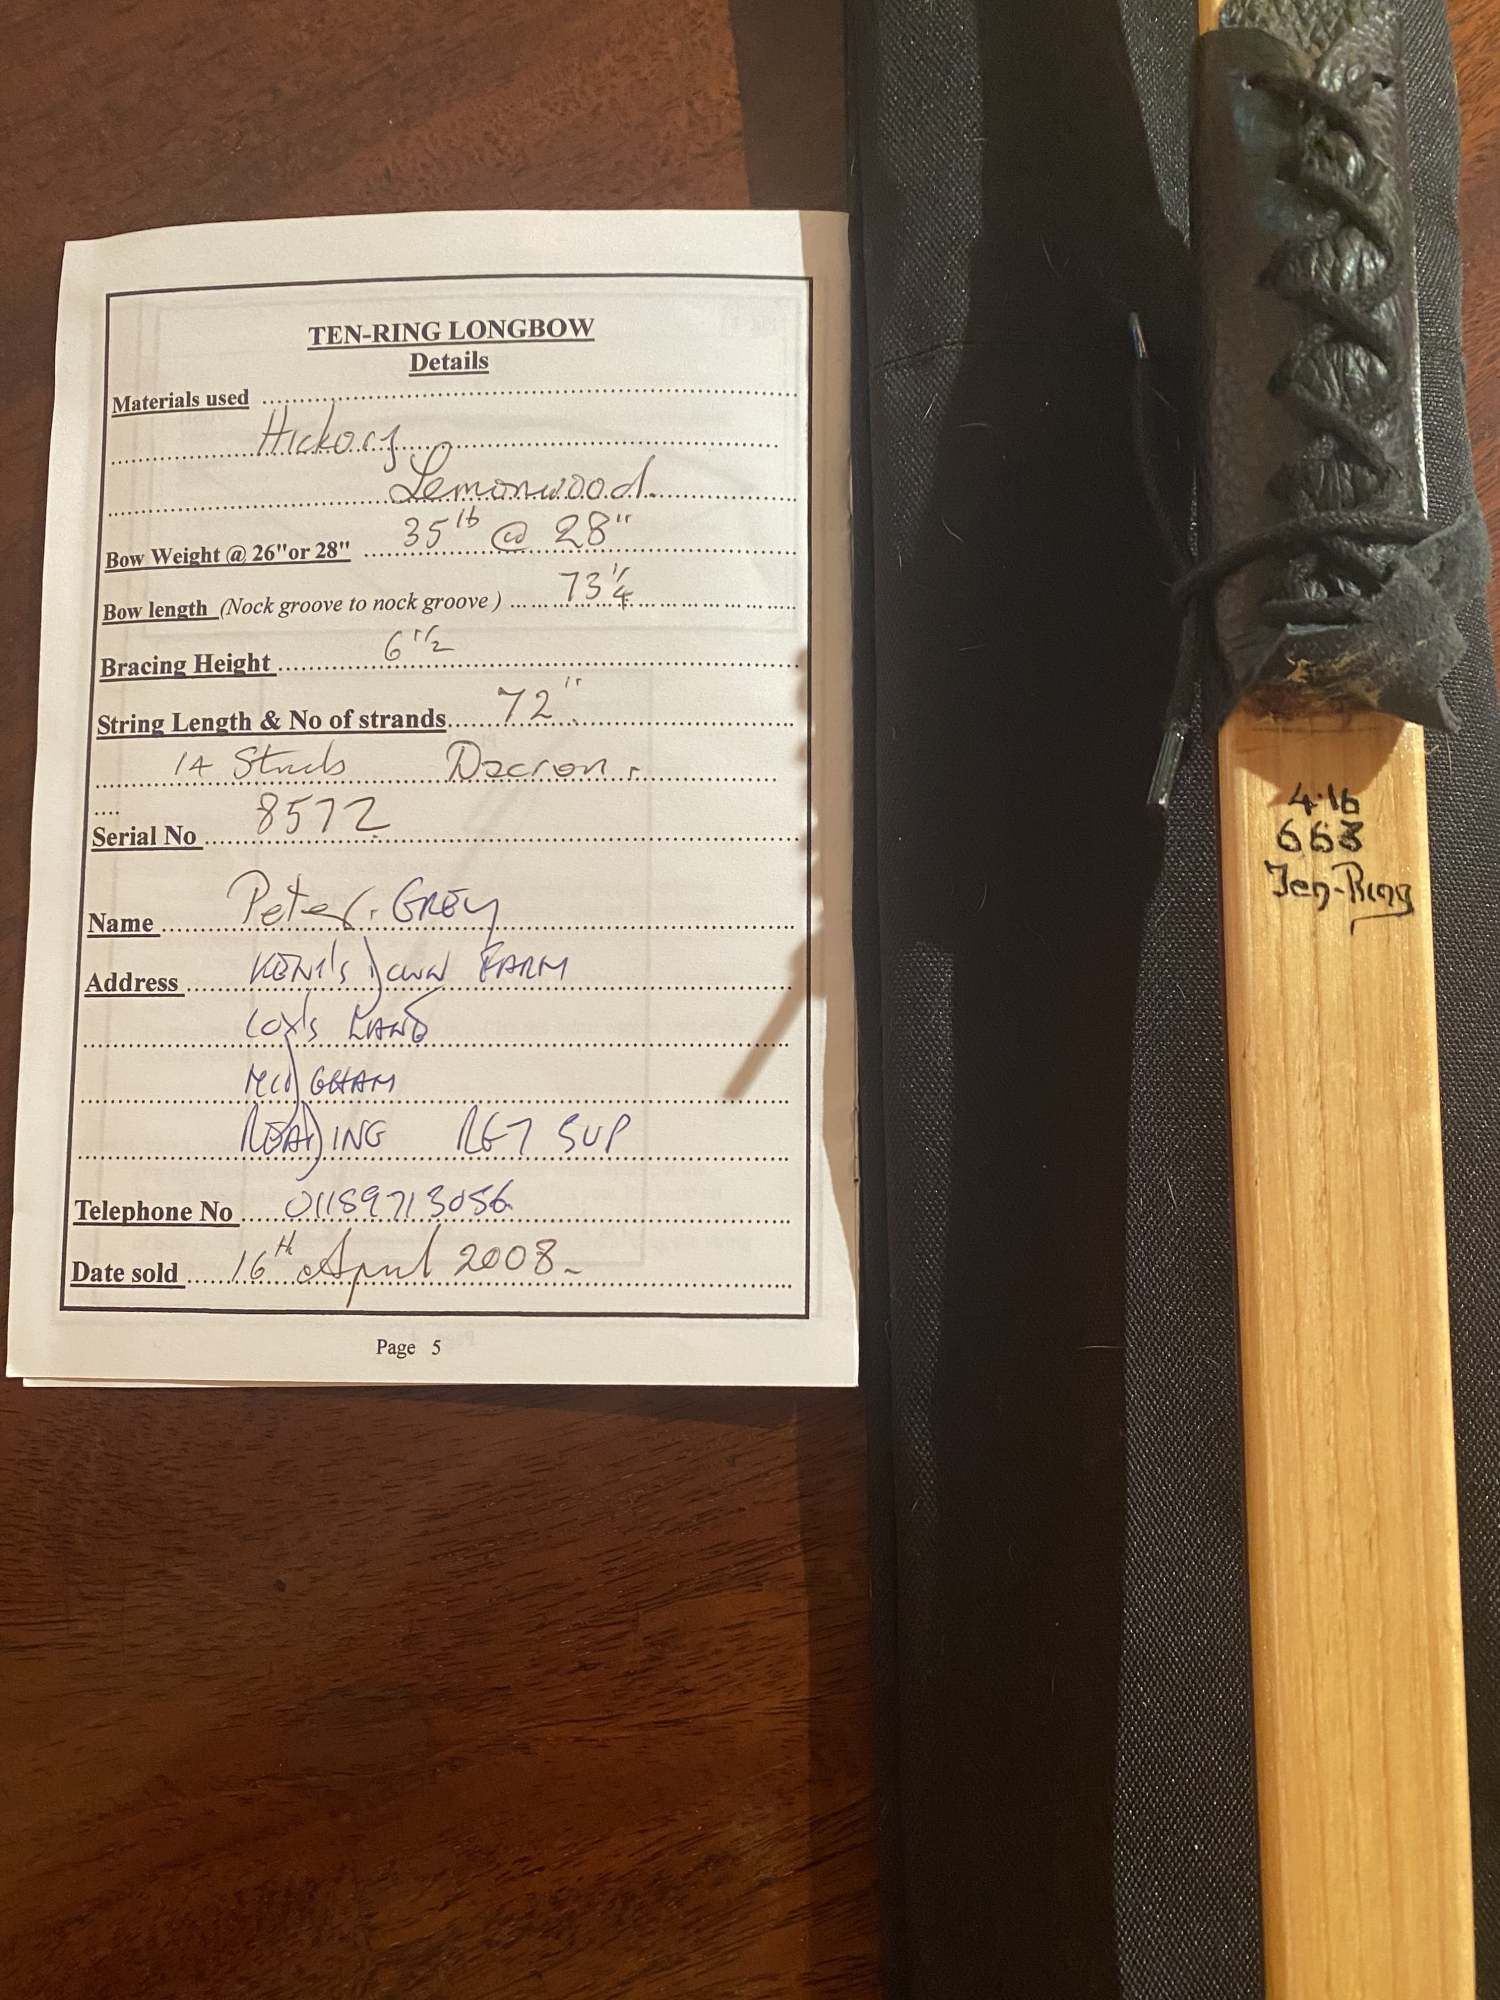 TEN-RING LONGBOW
Details
Materials used
Hickory
Lemonwood.
Bow Weight @ 26"or 28" 35lb @ 28"
Bow length (Nock groove to nock groove) 73"1/4
Bracing Height 6"1/2
String Length & No of strands 72"
14 Dacron.
Serial No 8572
Name Peter. GREY
Address DOWN FARM
LANE
READING RG7 5UP
Telephone No 01189713056
Date sold 16th April 2008
Page 5
4.16
668
Ten-Ring